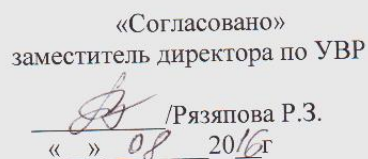 «Согласовано»
заместитель директора по УВР
/Рязяпова Р.З.
« » 08 2016г